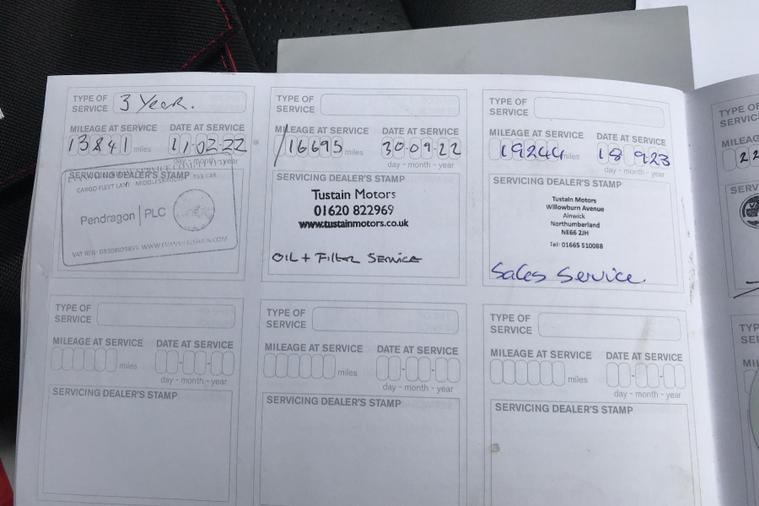 TYPE OF
SERVICE
3 Year.
MILEAGE AT SERVICE DATE AT SERVICE
13841 miles 11-02-22
day - month - year
SERVICING DEALER'S STAMP
CARGO FLEET LANE MIDDLESBROUGH
Pendragon PLC
TYPE OF
SERVICE
MILEAGE AT SERVICE DATE AT SERVICE
16695 miles 30-09-22
day - month - year
SERVICING DEALER'S STAMP
Tustain Motors
01620 822969
www.tustainmotors.co.uk
OIL + Filter SERVICE
TYPE OF
SERVICE
MILEAGE AT SERVICE DATE AT SERVICE
19244 miles 18 923
day - month - year
SERVICING DEALER'S STAMP
Tustain Motors
Willowburn Avenue
Alnwick
Northumberland
NE66 2JH
Tel: 01665 510088
Sales Service
TYPE OF
SERVICE
MILEAGE AT SERVICE DATE AT SERVICE
miles
day - month - year
SERVICING DEALER'S STAMP
TYPE OF
SERVICE
MILEAGE AT SERVICE DATE AT SERVICE
miles
day - month - year
SERVICING DEALER'S STAMP
TYPE OF
SERVICE
MILEAGE AT SERVICE DATE AT SERVICE
miles
day - month - year
SERVICING DEALER'S STAMP
TYPE O
SERVIC
MILEA
22
SERV